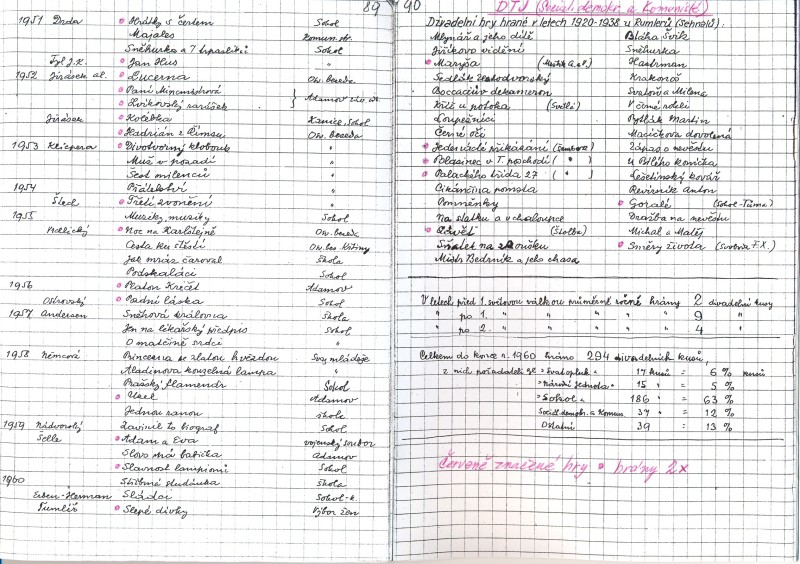 89
1951 Drda Hrátky s čertem Sokol
Majales Komun. str.
Sněhurka a 7 trpaslíků Sokol
Tyl J.K. Jan Hus "
1952 Jirásek al. Lucerna Osv. beseda
Paní Mincmistrová
Zvíkovský rarášek } Adamov záv. kl.
Jirásek Kolébka Kanice, Sokol
Hadrián z Římsů Osv. beseda
1953 Klicpera Divotvorný klobouk "
Muž v pozadí "
Šest milenců "
1954 Přátelství "
Štech Třetí zvonění "
1955 Muziky, muziky Sokol
Vrchlický Noc na Karlštejně Osv. beseda
Cesta ke štěstí Osv. bes. Křtiny
Jak mráz čaroval Škola
Podskaláci Sokol
1956 Platon Krečet Adamov
Ostrovský Pozdní láska Sokol
1957 Andersen Sněhová královna Škola
Jen na lékařský předpis Sokol
O matčině srdci "
1958 Němcová Princezna se zlatou hvězdou Svaz mládeže
Aladinova kouzelná lampa "
Pražský flamendr Sokol
Úkel Adamov
Jednou ranou škola
1959 Nádvorský Zavinil to biograf Sokol
Selle Adam a Eva vojenský soubor
Slovo má babička Adamov
Slavnost lampionů Sokol
1960 Stříbrná studánka Škola
Erben-Herman Sládci Sokol-k.
Tumlíř Slepé dívky Výbor žen
90
DTJ (Sociál. demokr. a Komunisté)
Divadelní hry hrané v letech 1920-1938 u Rumlerů (Sehnalů):
Mlynář a jeho dítě Bláha Švik
Jiříkovo vidění Sněhurka
Maryša (Mrštík A. a V.) Hastrman
Sedlák Zlatodvorský Krakonoš
Boccacciův dekameron Svatoň a Milena
Kříž u potoka (Světlá) V černé rokli
Loupežníci Pytlák Martin
Černé oči Macíčkova dovolená
Jedenácté přikázání (Šamberk) Zápas o nevěstu
Palasinec v T. poschodí ( " ) U Bílého koníčka
Palackého třída 27 ( " ) Lešetínský kovář
Cikánčina pomsta Revírník Anton
Pomněnky Gorale (Sokol-Tůma)
Na statku a v chaloupce Dražba na nevěstu
Závěť (Štolba) Michal a Matěj
Sňatek na zkoušku Směry života (Svoboda F.X.)
Mistr Bedrník a jeho chasa
V letech před 1. světovou válkou průměrně ročně hrány 2 divadelní kusy
" po 1. " " " " " 9 "
" po 2. " " " " " 4 "
Celkem do konce r. 1960 hráno 294 divadelních kusů,
z nich pořadatelé je "Svatopluk" 17 kusů = 6 % kusů
"Národní jednota" 15 " = 5 %
"Sokol" 186 " = 63 %
Sociál. demokr. a Komun. 37 " = 12 %
Ostatní 39 = 13 %
Červeně značené hry hrány 2x